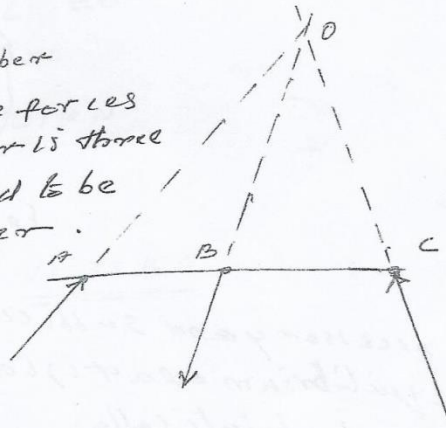 ber
e forces
r is three
d to be
er.
O
A B C